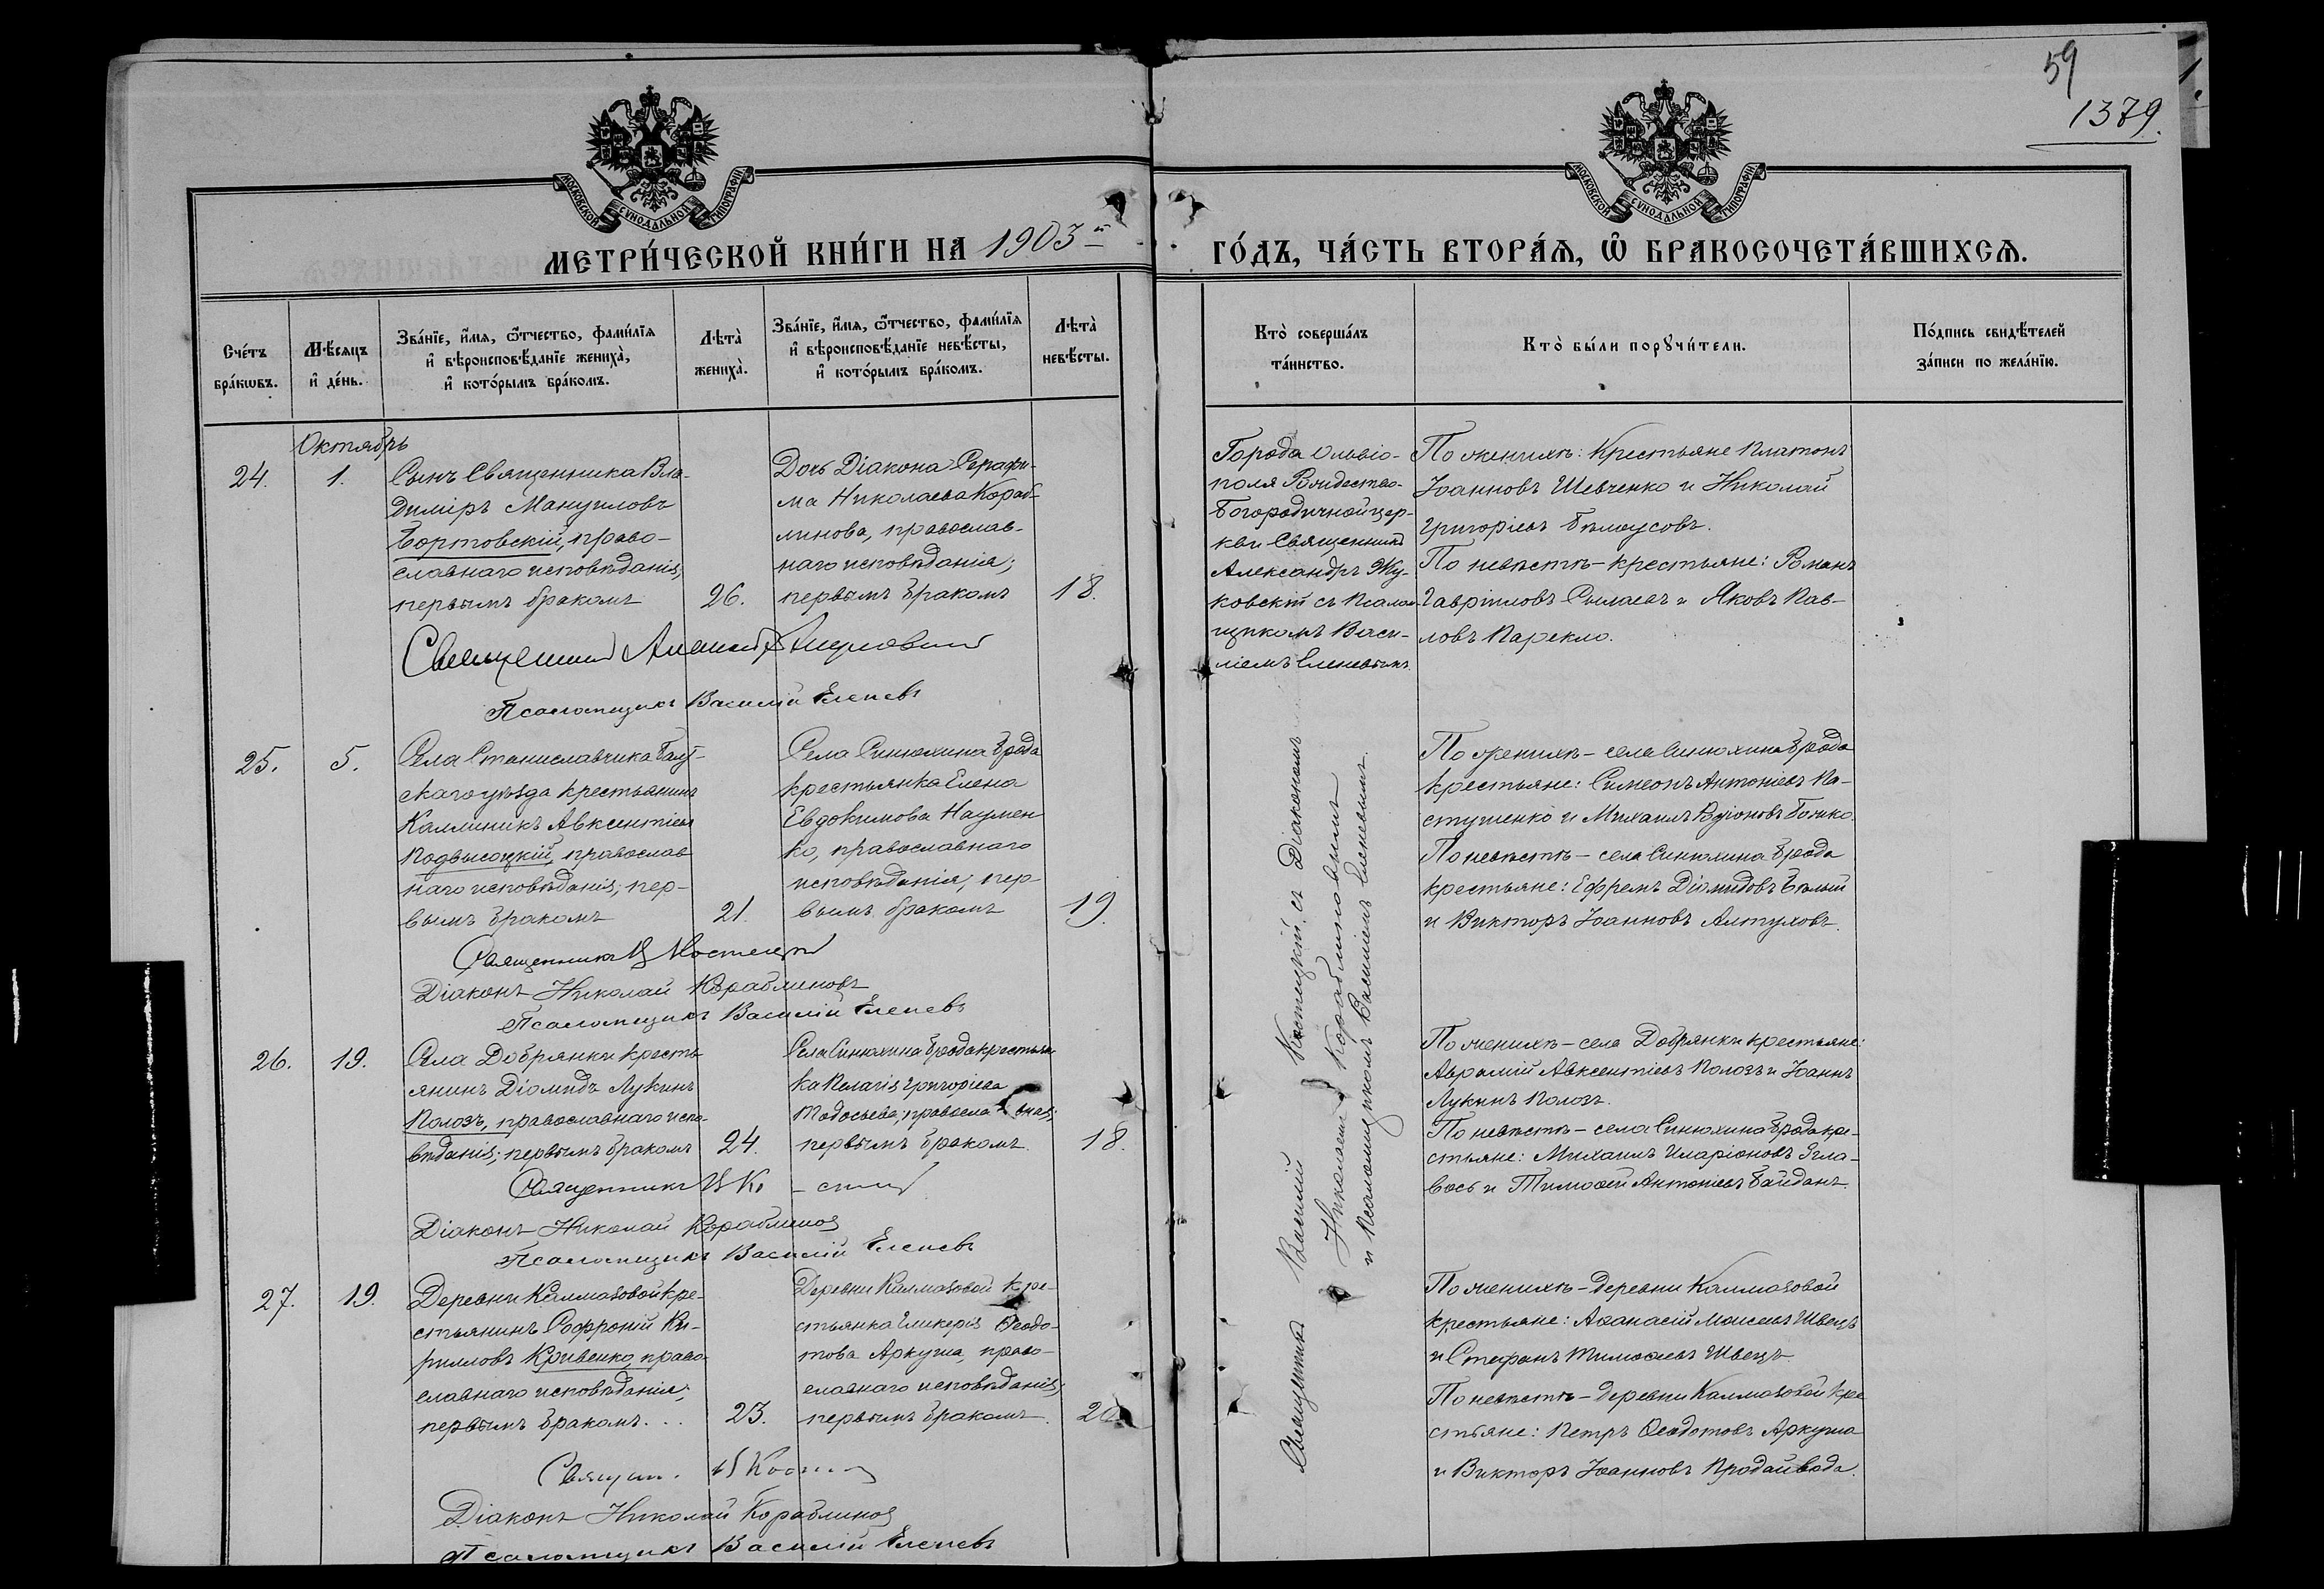 59
1379.
МОСКОВСКОЙ СѴНОДАЛЬНОЙ ТИПОГРАФІИ
МОСКОВСКОЙ СѴНОДАЛЬНОЙ ТИПОГРАФІИ
МЕТРИ́ЧЕСКОЙ КНИ́ГИ НА 1903й
ГО́ДЪ, ЧА́СТЬ ВТОРА́Ѧ, Ѽ БРАКОСОЧЕТА́ВШИХСѦ.
Сче́тъ
бра́кѡвъ.
Мѣ́сяцъ
и҆ де́нь.
Зва́нїе, и҆́мѧ, ѻ҆́тчество, фами́лїѧ
и҆ вѣроисповѣ́данїе жениха̀,
и҆ кото́рымъ бра́комъ.
Лѣта̀
жениха̀.
Зва́нїе, и҆́мѧ, ѻ҆́тчество, фами́лїѧ
и҆ вѣроисповѣ́данїе невѣ́сты,
и҆ кото́рымъ бра́комъ.
Лѣта̀
невѣ́сты.
Кто̀ соверша́лъ
та́инство.
Кто̀ бы́ли порꙋчи́тели.
По́дпись свидѣ́телей
за́писи по жела́нїю.
Октябрь
24.
1.
Сынъ Священника Вла-
диміръ Мануиловъ
Бортовскій, право-
славнаго исповѣданія,
первымъ бракомъ
26.
Дочь Діакона Серафи-
ма Николаева Кораб-
линова, православ-
наго исповѣданія;
первымъ бракомъ
18.
Города Ольвіо-
поля Рождество-
Богородичной цер-
кви Священникъ
Александръ Жу-
ковскій съ Псалом-
щикомъ Васи-
ліемъ Еленевымъ.
По женихѣ: Крестьяне Платонъ
Іоанновъ Шевченко и Николай
Григоріевъ Бѣлоусовъ.
По невѣстѣ – крестьяне: Романъ
Гавріиловъ и Яковъ Пав-
ловъ
Священникъ
Псаломщикъ Василій Еленевъ
25.
5.
Села Станиславчика Балт-
скаго уѣзда крестьянинъ
Каллиникъ Авксентіевъ
Подвысоцкій, православ-
наго исповѣданія; пер-
вымъ бракомъ
21.
Села Синюхина Брода
крестьянка Елена
Евдокимова Наумен
ко, православнаго
исповѣданія, пер-
вымъ бракомъ
19.
По женихѣ – села Синюхина Брода
крестьяне: Симеонъ Антоніевъ Па-
стушенко и Михаилъ Родіоновъ Божко.
По невѣстѣ – села Синюхина Брода
крестьяне: Ефремъ Діомидовъ Бѣлый
и Викторъ Іоанновъ Алтуховъ.
Священникъ В Костецкій
Діаконъ Николай Кораблиновъ
Псаломщикъ Василій Еленевъ
26.
19.
Села Добрянки кресть-
янинъ Діомидъ Лукинъ
Полозъ, православнаго испо-
вѣданія; первымъ бракомъ
24.
Села Синюхина Брода крестьян
ка Пелагія Григоріева
Тодосьева, православная;
первымъ бракомъ
18.
По женихѣ – села Добрянки крестьяне:
Авраамій Авксентіевъ Полозъ и Іоаннъ
Лукинъ Полозъ.
По невѣстѣ – села Синюхина Брода кре-
стьяне: Михаилъ Иларіоновъ
и Тимоѳей Антоніевъ Байданъ.
Священникъ В Ко
Діаконъ Николай Кораблиновъ
Псаломщикъ Василій Еленевъ
27.
19.
Деревни Калмазовой кре-
стьянинъ Софроній Ки-
рилловъ Кривенко, право-
славнаго исповѣданія;
первымъ бракомъ...
23.
Деревни Калмазовой кре-
стьянка Гликерія Ѳеодо-
това Аркуша, право-
славнаго исповѣданія,
первымъ бракомъ.
Священникъ Василій Костецкій съ Діакономъ
Николаемъ Кораблиновымъ
и Псаломщикомъ Василіемъ Еленевымъ.
По женихѣ – деревни Калмазовой
крестьяне: Аѳанасій Моисеевъ Швецъ
и Стефанъ Тимоѳеевъ Швецъ
По невѣстѣ – деревни Калмазовой кре
стьяне: Петръ Ѳеодотовъ Аркуша
и Викторъ Іоанновъ Продайвода.
Діаконъ Николай Кораблиновъ
Псаломщикъ Василій Еленевъ